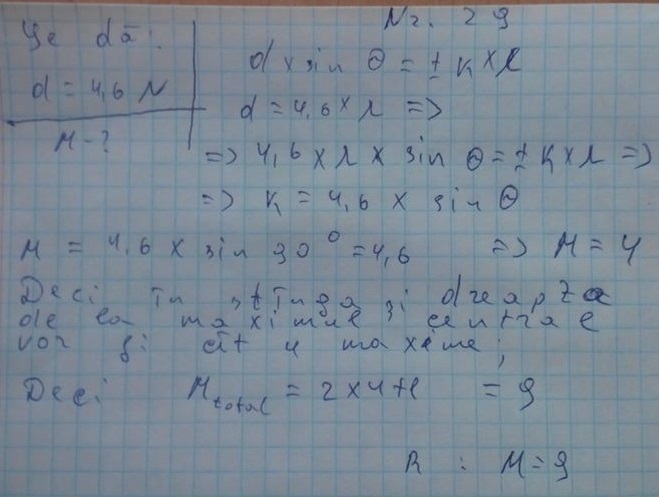 Nr. 29
Se dă:
d = 4,6 λ
M - ?
d × sin θ = ± k × λ
d = 4,6 × λ =>
=> 4,6 × λ × sin θ = ± k × λ =>
=> k = 4,6 × sin θ
M = 4,6 × sin 90° = 4,6 => M = 4
Deci în stînga și dreapta
de la maximul central
vor fi cît 4 maxime;
Deci M total = 2 × 4 + 1 = 9
R : M = 9